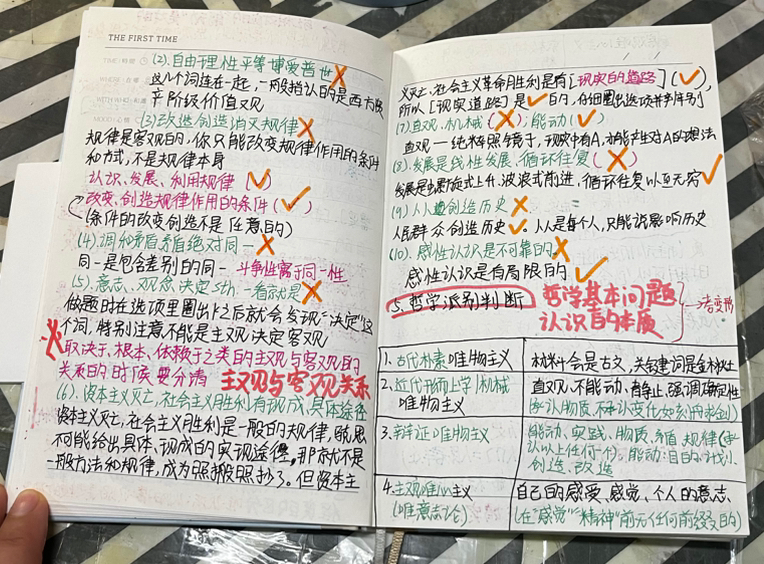 THE FIRST TIME
(2).自由理性平等博爱普世✗
这八个词连在一起，一般指认的是西方资
产阶级价值观
(3)改造创造消灭规律✗
规律是客观的，你只能改变规律作用的条件
和方式，不是规律本身
认识、发展、利用规律(✓)
改变、创造规律作用的条件(✓)
(条件的改变创造不是任意的)
(4)调和矛盾矛盾绝对同一✗
同一是包含差别的同一 斗争性寓于同一性
(5).意志、观念 决定sth.一看就是✗
做题时在选项里圈出卜之后就会发现"决定"这
个词，特别注意不能是主观决定客观
取决于、根本、依赖于之类的主观与客观的
关系的时候要分清 主观与客观关系
(6).资本主义灭亡，社会主义胜利有现成、具体途径
资本主义灭亡，社会主义胜利是一般的规律，马恩
不可能给出具体、现成的实现途径，那就不是
一般方法和规律，成为照搬照抄了。但资本主
义灭亡、社会主义革命胜利是有[现实的道路](✓)，
所以[现实道路]是✓的，仔细圈出选项并判别
(7)直观、机械(✗)；能动(✓)
直观—纯粹照镜子，现实中有A，才能产生对A的想法
(8).发展是线性发展、循环往复(✗)
发展是螺旋式上升、波浪式前进，循环往复以至无穷✓
(9)人人都创造历史✗
人民群众创造历史✓。人人是每个人，只能说影响历史
(10).感性认识是不可靠的✗
感性认识是有局限的✓
5.哲学派别判断 哲学基本问题
认识的本质
1.古代朴素唯物主义 材料会是古文，关键词是金木水火土
2.近代形而上学/机械
唯物主义
直观、不能动、有静止、强调确定性
(承认物质、不承认变化如刻舟求剑)
3.辩证唯物主义 能动、实践、物质、矛盾、规律(承
认以上任何一个)。能动：目的、计划、
创造、改造
4.主观唯心主义
(唯意志论)
自己的感受、感觉、个人的意志、
(在"感觉""精神"前无任何前缀的)